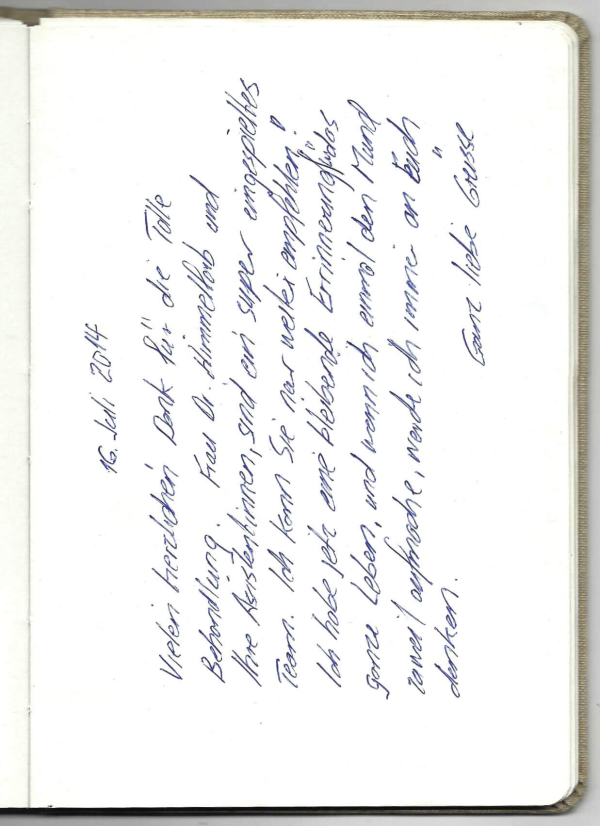 16. Juli 2014
Vielen herzlichen Dank für die Tolle
Behandlung. Frau Dr. Himmelhab und
Ihre Assistentinnen, sind ein super eingespieltes
Team. Ich kann Sie nur weiter empfehlen!!
Ich habe jetz eine bleibende Errinnerung für das
ganze Leben, und wenn ich einmal den Mund
zuweil aufmache, werde ich immer an Euch
denken.
Ganz liebe Grüsse